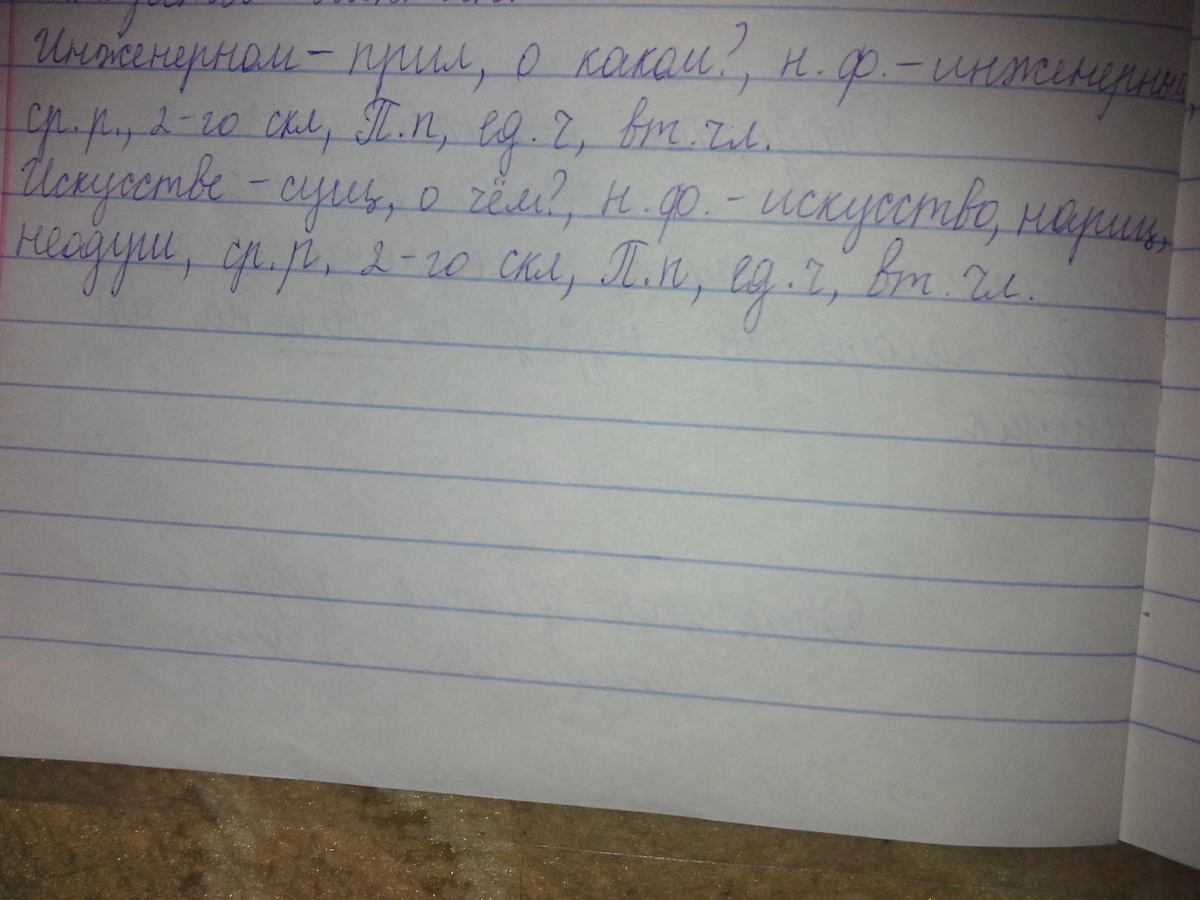 Инженерном - прил, о каком?, н. ф. - инженерный,
ср. р., 2-го скл, П. п, ед. ч, вт. чл.
Искусстве - сущ, о чём?, н. ф. - искусство, нариц,
неодуш, ср. р, 2-го скл, П. п, ед. ч, вт. чл.